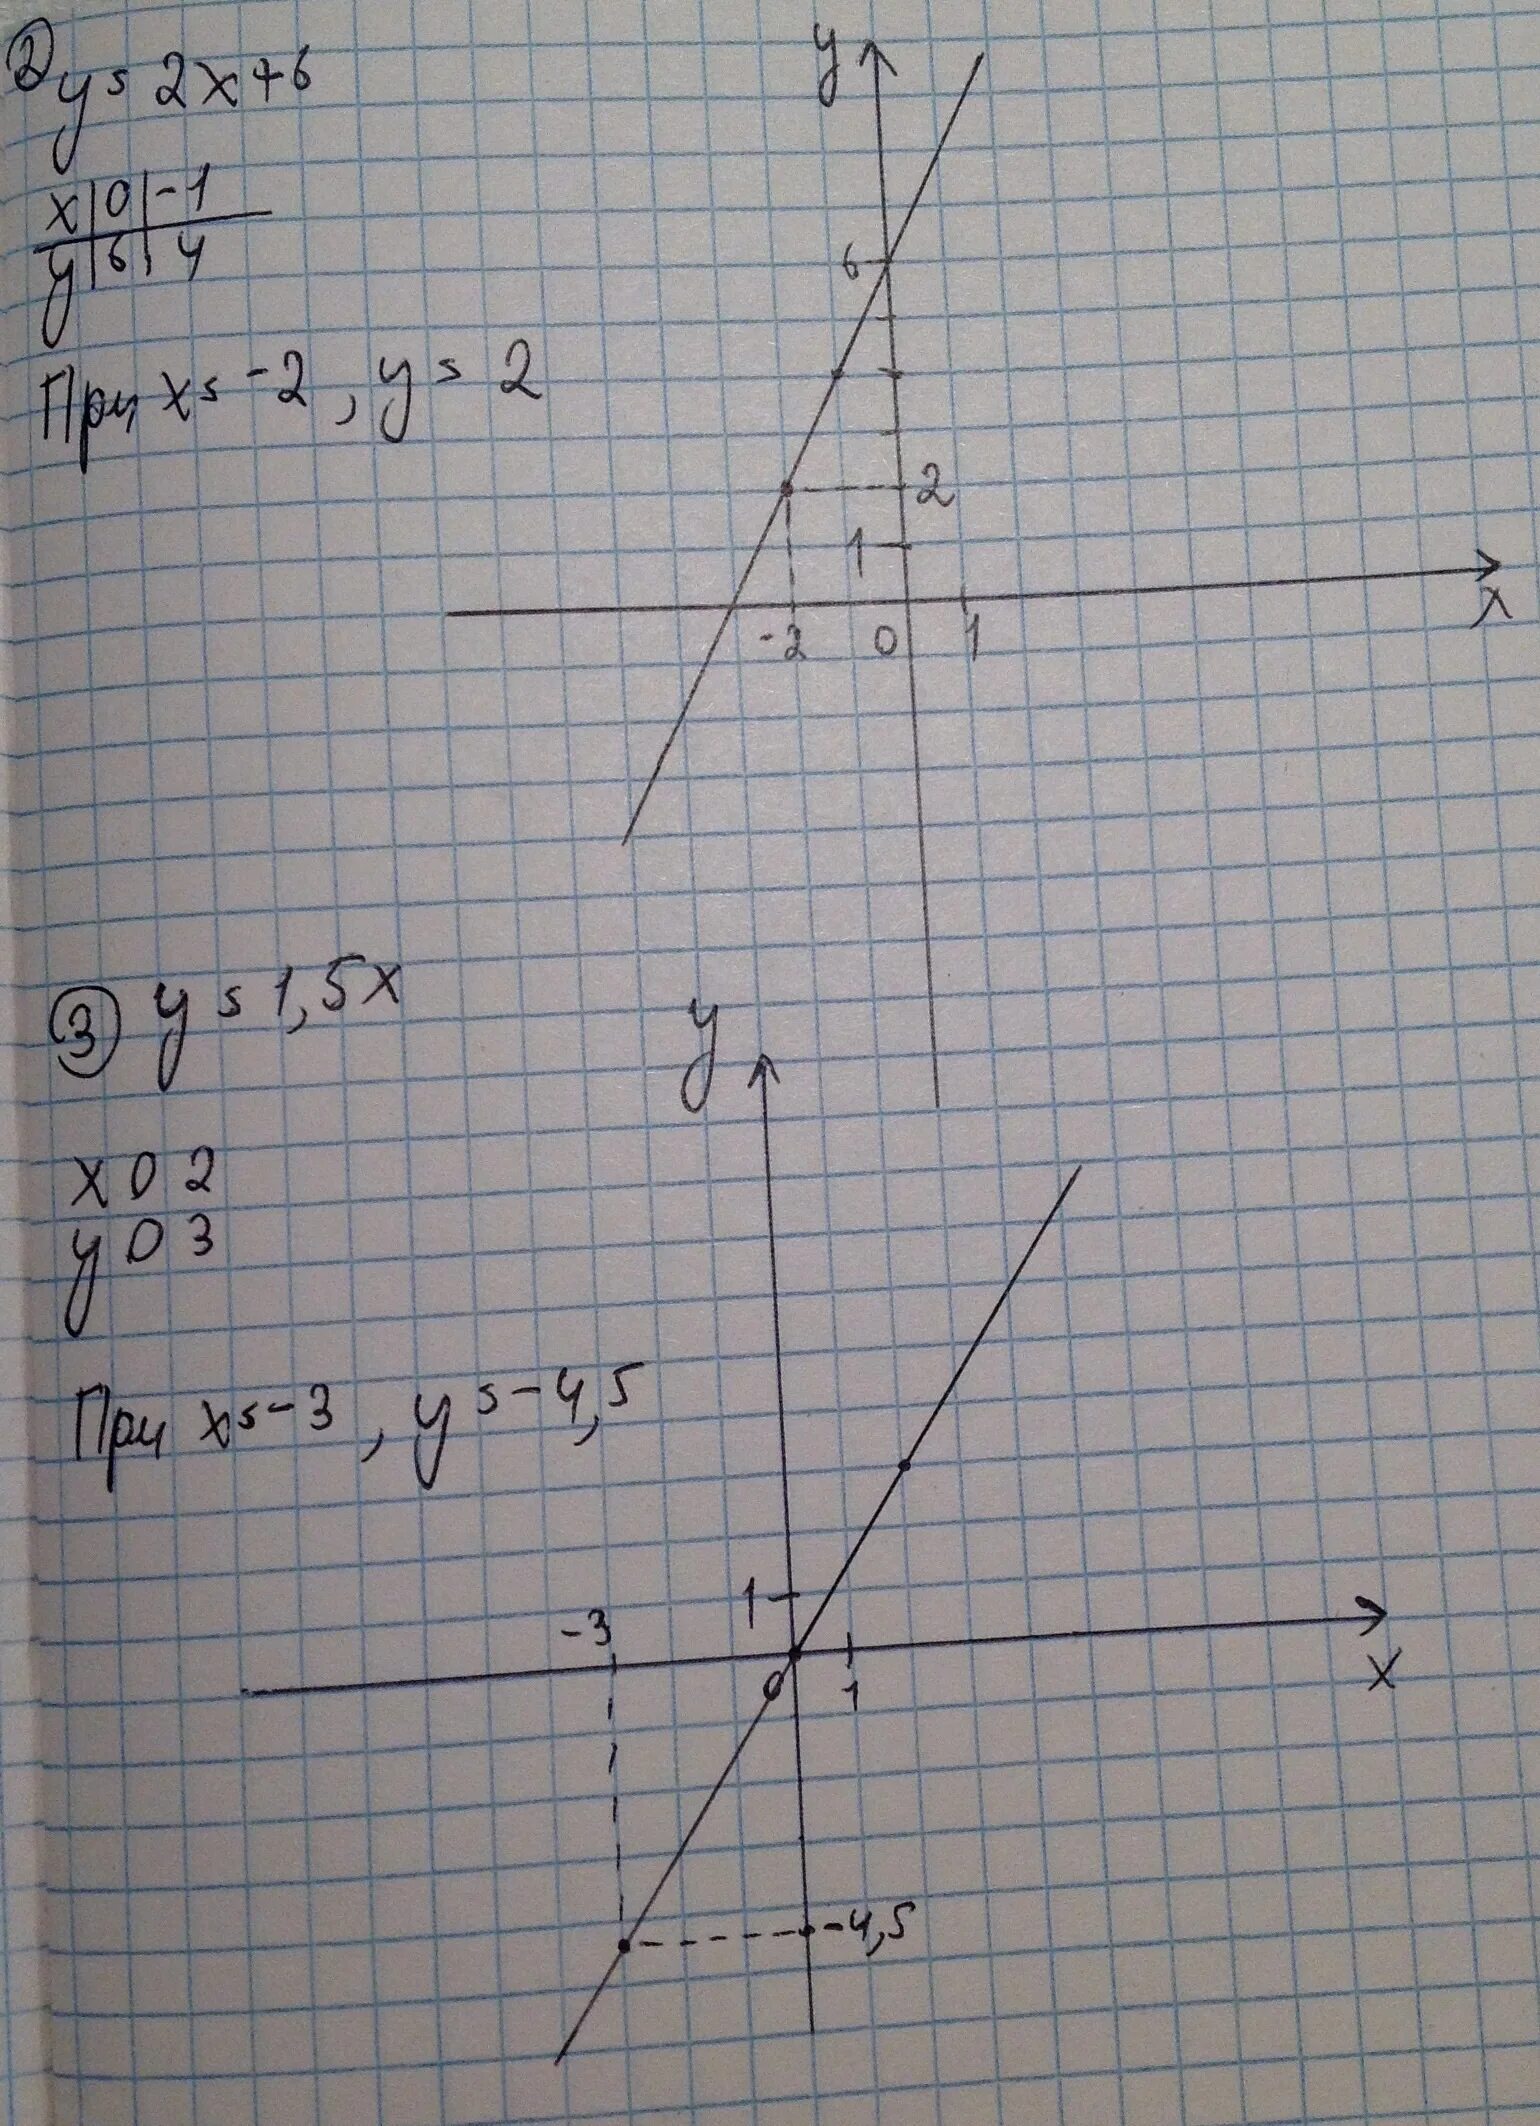 ② y = 2x + 6
x | 0 | -1
y | 6 | 4
При x = -2, y = 2
y
6
2
1
-2 0 1
x
③ y = 1,5x
x 0 2
y 0 3
При x = -3, y = -4,5
y
1
-3
0 1
x
-4,5